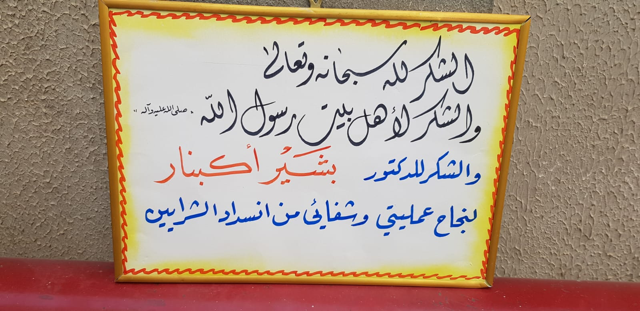 الشكر لله سبحانه وتعالى
والشكر لأهل بيت رسول الله " صلى الله عليه وآله "
والشكر للدكتور بشير أكبنار
لنجاح عمليتي وشفائي من انسداد الشرايين